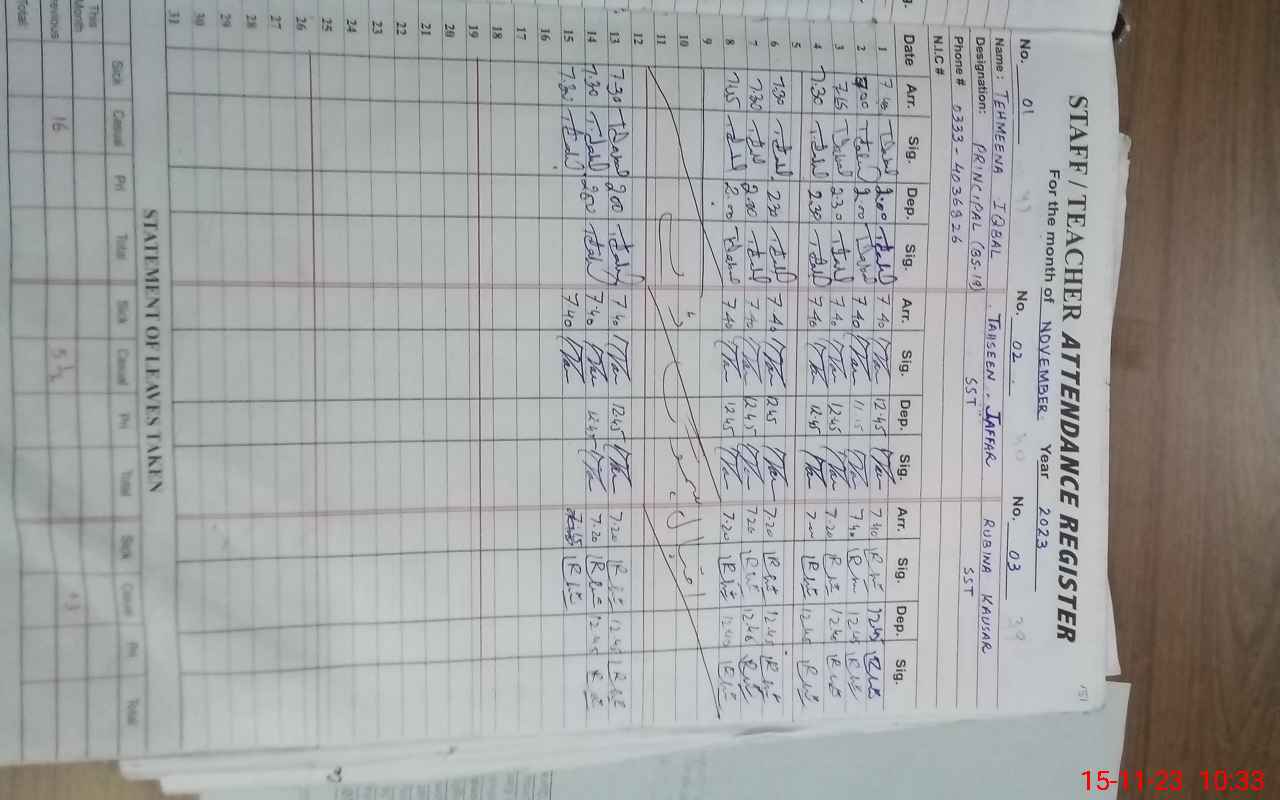 STAFF / TEACHER ATTENDANCE REGISTER
For the month of NOVEMBER Year 2023
No. 01 No. 02 No. 03
Name: TEHMEENA IQBAL TAHSEEN JAFFAR RUBINA KAUSAR
Designation: PRINCIPAL (BS-19) SST SST
Phone # 0333-4036926
N.I.C #
Date Arr. Sig. Dep. Sig. Arr. Sig. Dep. Sig. Arr. Sig. Dep. Sig.
1 7.40 2.00 7.40 12.45 7.40 12.45
2 7.30 2.00 7.40 11.15 7.40 12.45
3 7.15 2.30 7.40 12.45 7.20 12.45
4 7.30 2.30 7.40 12.45 7.20 12.45
5
6 7.30 2.30 7.40 12.45 7.20 12.45
7 7.30 2.00 7.40 12.45 7.20 12.45
8 7.45 2.00 7.40 12.45 7.20 12.45
9
10
11
12
13 7.30 2.00 7.40 12.45 7.20 12.45
14 7.30 2.00 7.40 12.45 7.20 12.45
15 7.30 7.40
16
17
18
19
20
21
22
23
24
25
26
27
28
29
30
31
STATEMENT OF LEAVES TAKEN
Sick Casual Pri Total Sick Casual Pri Total Sick Casual Pri Total
This Month
Previous 16 5 ½
Total:
151
15-11-23 10:33